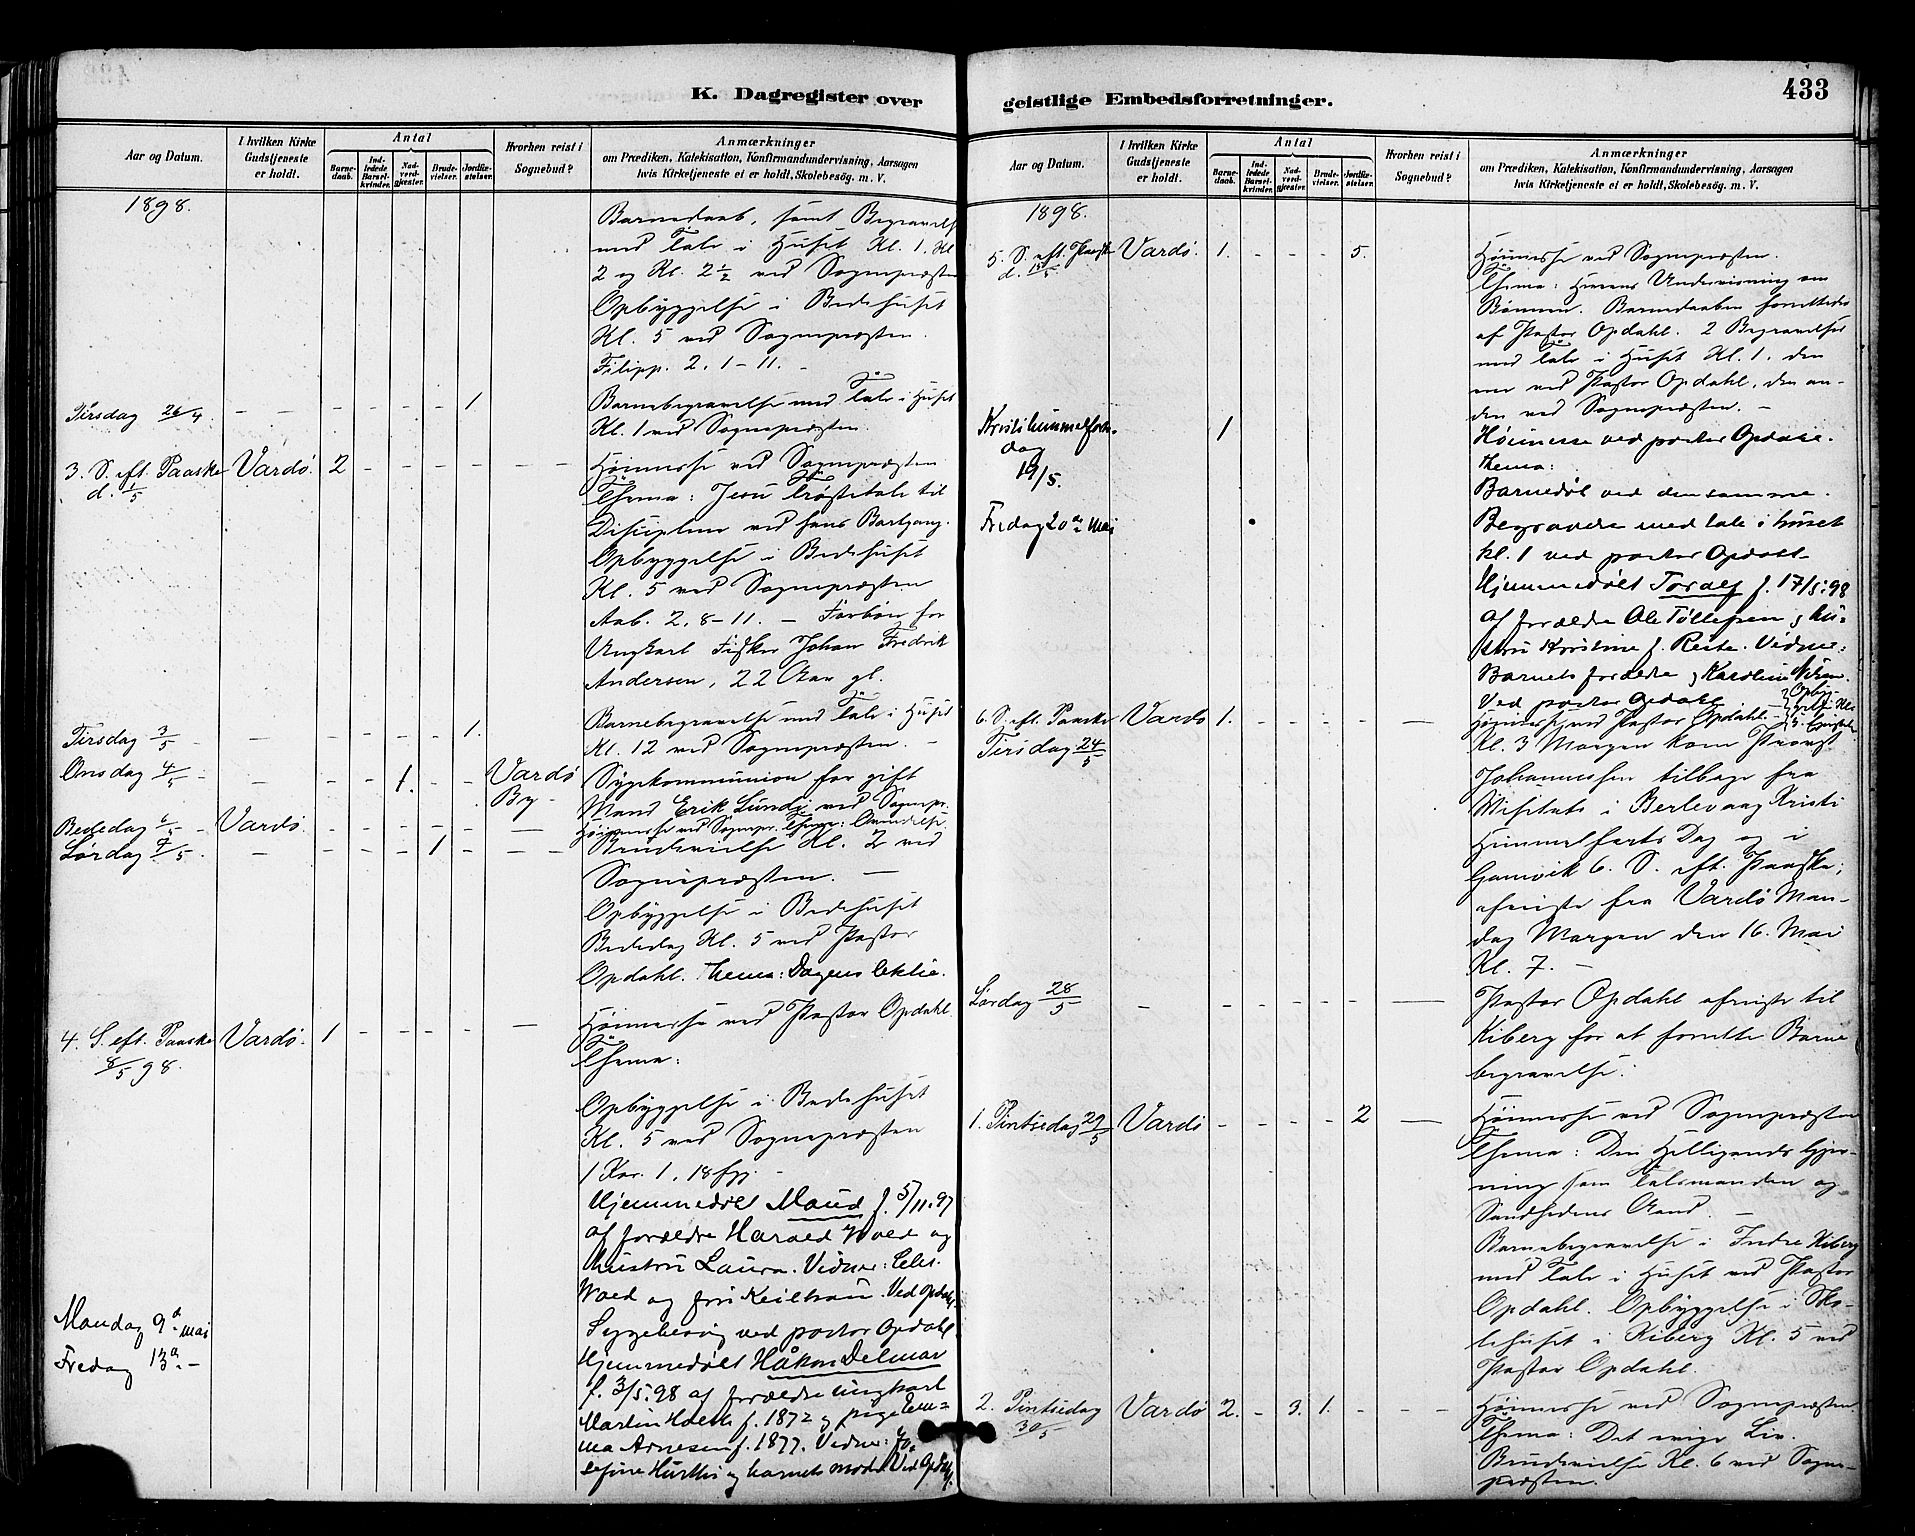 K. Dagregister over
Aar og Datum.
I hvilken Kirke Gudstjeneste er holdt.
Antal
Barnedaab.
Indledede Barselkvinder.
Nadverdgjæster.
Brudevielser.
Jordfæstelser.
Hvorhen reist i Sognebud?
Anmærkninger
om Prædiken, Katekisation, Konfirmandundervisning, Aarsagen
hvis Kirketjeneste ei er holdt, Skolebesøg. m. V.
1898.
Barnedaab, samt Begravelse
med Tale i Huset Kl. 1. Kl
2 og Kl. 2 1/2 ved Sognepræsten
Opbyggelse i Bedehuset
Kl. 5 ved Sognepræsten.
Filipp. 2, 1-11. -
Tirsdag 26/4 - - - - - - 1 Barnebegravelse med Tale i Huset
Kl. 1 ved Sognepræsten.
3. S. eft. Paaske Vardö. 2 - - - - - Høimesse ved Sognepræsten
d. 1/5 Thema: Jesu Trøstetale til
Disciplene ved hans Bortgang.
Opbyggelse i Bedehuset
Kl. 5 ved Sognepræsten
Aab. 2, 8-11. - Forbøn for
Ungkarl Fisker Johan Fredrik
Andersen, 22 Aar gl.
Barnebegravelse med Tale i Huset
Tirsdag 3/5 - - - - - 1. Kl. 12 ved Sognepræsten. -
Onsdag 4/5 - - - - 1. - - Vardö By - Sygekommunion for gift
Mand Erik Lunde ved Sognepr.
Bededag 6/5 - Vardö. - - - - - - Høimesse ved Sognepr. Thema: Omvendelse
Lørdag 7/5. - - - - 1 - - Brudevielse Kl. 2 ved
Sognepræsten. -
Opbyggelse i Bedehuset
Bededag Kl. 5 ved Pastor
Opdahl. Thema: Dagens lektie.
4. S. eft. Paaske Vardö. 1 - - - - - Høimesse ved Pastor Opdahl.
8/5 98. Thema:
Opbyggelse i Bedehuset
Kl. 5 ved Sognepræsten
1 Kor. 1, 18 fgg. -
Hjemmedøbt Maud f. 5/11.97
af forældre Harald Wold og
hustru Laura. Vidner:
Wold og fru Keilhau. Ved Opdahl.
Mandag 9d mai Sygebesøg ved pastor Opdahl.
Fredag 13d. - Hjemmedøbt Håkon Delmar
f. 3/5.98 af forældre ungkarl
Martin Holm f. 1872 og pige Em=
ma Arnesen f. 1877. Vidner: Jo=
sefine Hurthi og barnets moder. Ved Opdahl.
geistlige Embedsforretninger.
433
Aar og Datum.
I hvilken Kirke Gudstjeneste er holdt.
Antal
Barnedaab.
Indledede Barselkvinder.
Nadverdgjæster.
Brudevielser.
Jordfæstelser.
Hvorhen reist i Sognebud?
Anmærkninger
om Prædiken, Katekisation, Konfirmandundervisning, Aarsagen
hvis Kirketjeneste ei er holdt, Skolebesøg. m. V.
1898.
5. S. eft. Paaske Vardö. 1. - - - 5. Høimesse ved Sognepræsten.
d. 15/5 Thema: Herrens Undervisning om
Bønnen. Barnedaaben forrettedes
af Pastor Opdahl. 2 Begravelser
med Tale i Huset Kl. 1, den
ene ved Pastor Opdahl, den an-
den ved Sognepræsten. -
Kristi himmelfarts- 1 Høimesse ved pastor Opdahl.
dag Thema:
19/5. Barnedøb ved den samme.
Fredag 20de mai Begravelse med tale i huset
kl. 1 ved pastor Opdahl
Hjemmedøbt Toralf f. 17/5.98
af forældre Ole Tollefsen og hu=
stru Kristine f. Reite. Vidner:
Barnets forældre og Karoline Nilsen.
Ved pastor Opdahl
6. S. eft. Paaske Vardö 1. - - - - - Høimesse ved Pastor Opdahl. -
Tirsdag 24/5 Kl. 3 Morgen kom Provst
Johannessen tilbage fra
Visitats i Berlevaag Kristi
Himmelfarts Dag og i
Gamvik 6. S. eft. Paaske;
afreiste fra Vardö Man-
dag Morgen den 16. Mai
Kl. 7. -
Lørdag 28/5 - - - - - - - Pastor Opdahl afreiste til
Kiberg for at forrette Barne
begravelse.
1. Pintsedag 29/5 Vardö - - - - 2 - Høimesse ved Sognepræsten
Thema: Den Helligaands Gjer-
ning som Talsmanden og
Sandhedens Aand. -
Barnebegravelse i Indre Kiberg
med Tale i Huset ved Pastor
Opdahl. Opbyggelse i Sko-
lehuset i Kiberg Kl. 5 ved
Pastor Opdahl.
2. Pintsedag Vardö 2. - 3. 1. - - Høimesse ved Sognepræsten.
30/5 Thema: Det evige Liv.
Brudevielse Kl. 6 ved Sogne-
præsten.